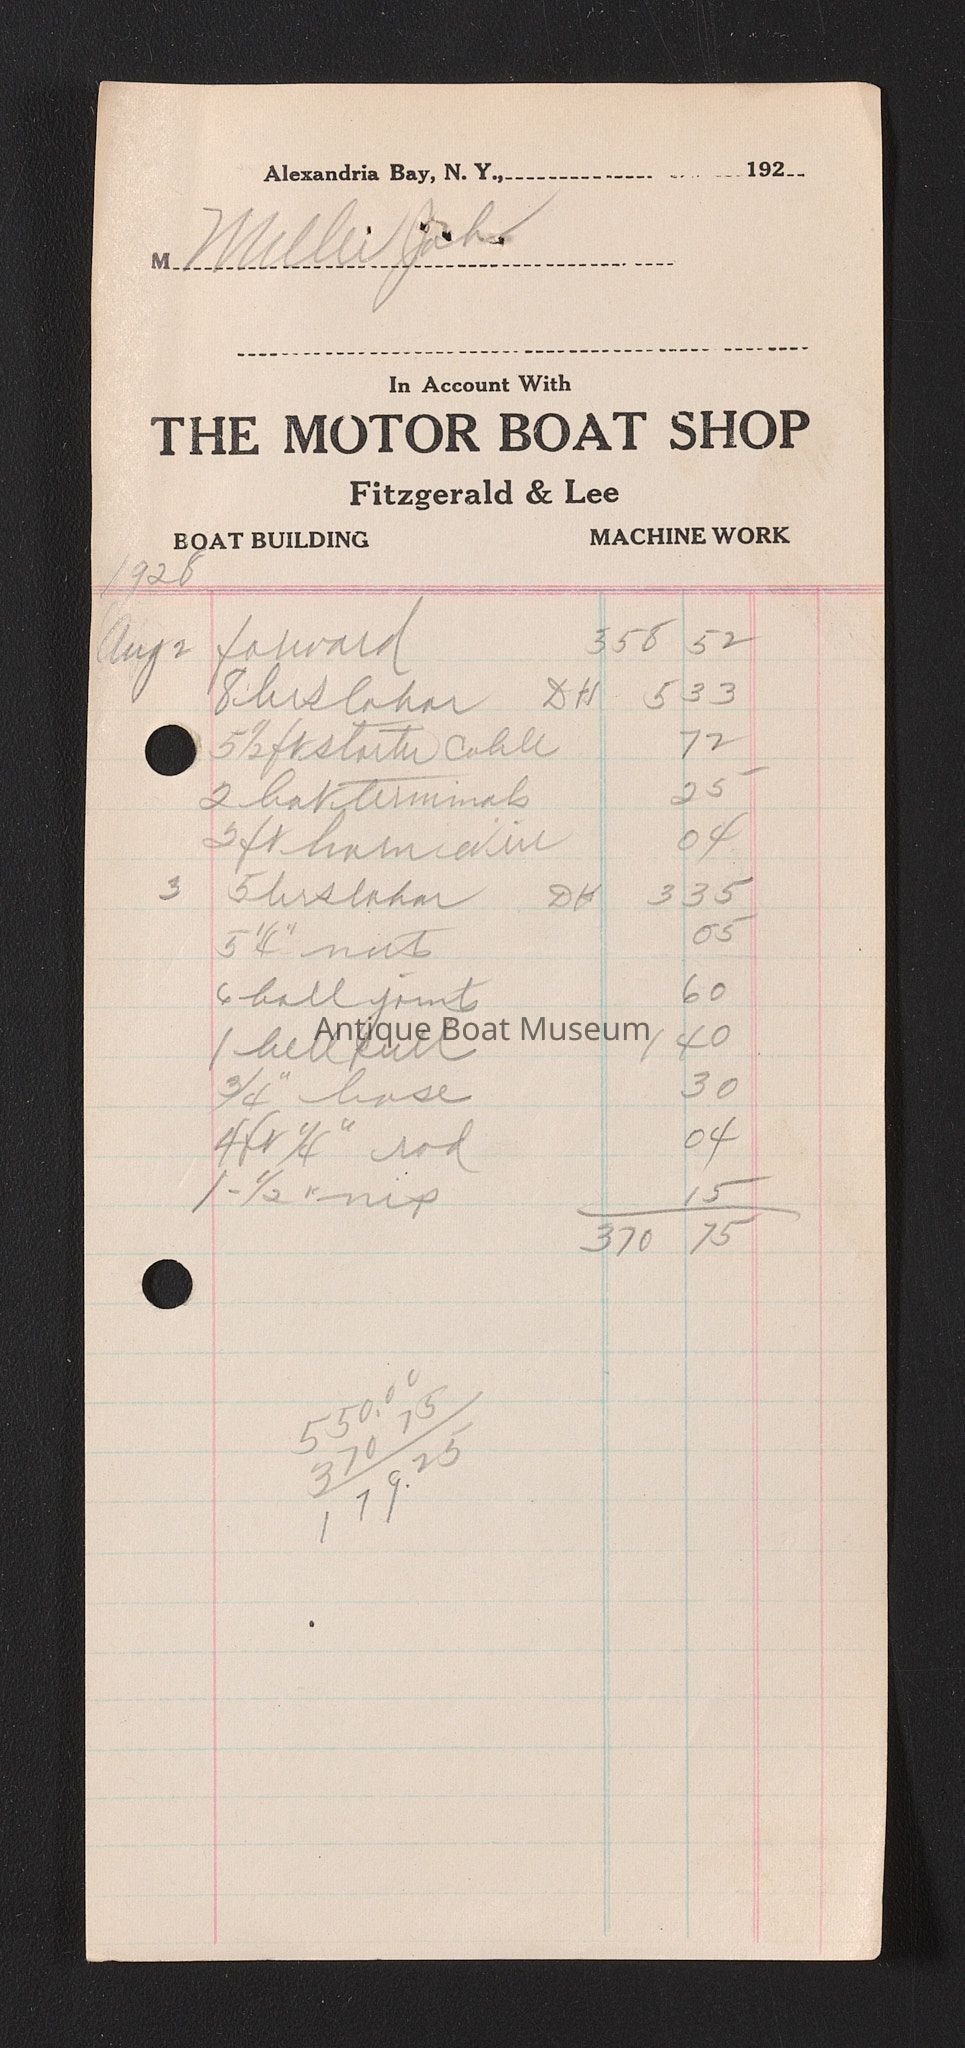 Alexandria Bay, N. Y., 192
M Miller Job
In Account With
THE MOTOR BOAT SHOP
Fitzgerald & Lee
BOAT BUILDING MACHINE WORK
1928
Aug 2 forward 358 52
8 hrs labor DH 5 33
5 1/2 ft starter cable 72
2 bat terminals 25
3 ft horn wire 04
3 5 hrs labor DH 3 35
5 1/4" nuts 05
6 ball joints 60
1 bell pull 1 40
Antique Boat Museum
3/4" hose 30
4 ft 1/4" rod 04
1 - 1/2" nip 15
370 75
550.00
370 75
179.25